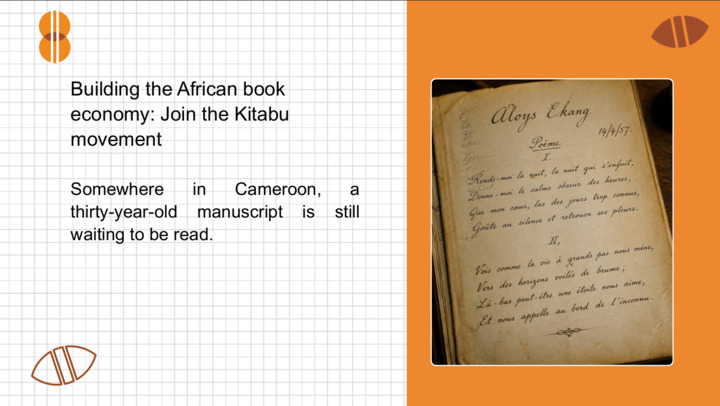 Building the African book
economy: Join the Kitabu
movement
Somewhere in Cameroon, a
thirty-year-old manuscript is still
waiting to be read.
Aloys Ekang
14/4/57.
Poème
I
Rends-moi la nuit, la nuit qui s'enfuit,
Donne-moi le calme obscur des heures,
Que mon cœur, las des jours trop connus,
Goûte au silence et retrouve ses pleurs.
II,
Vois comme la vie à grands pas nous mène,
Vers des horizons voilés de brume;
Là-bas peut-être une étoile nous aime,
Et nous appelle au bord de l'inconnu.